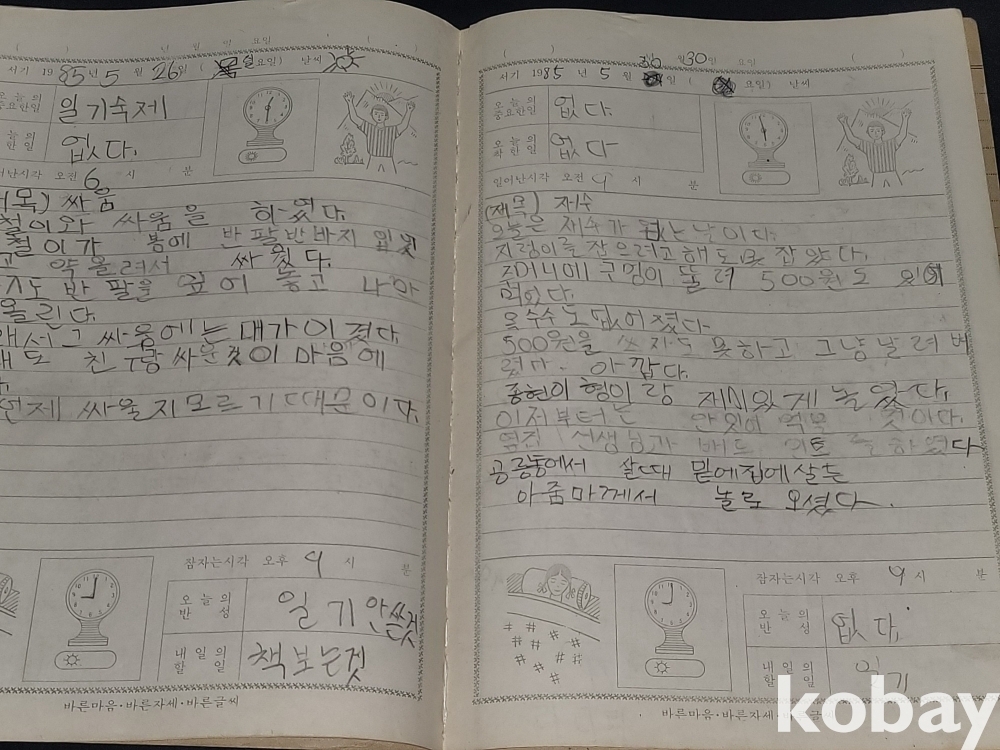 ( ) 년 월 일 요일 ( ) ( )
서기 1985년 5월 26일 (일요일) 날씨
늘의
중요한일
일기숙제
늘의
한일
없다.
어난시각 오전 6시 분
목) 싸움
철이와 싸움을 하였다.
철이가 봄에 반팔반바지 입었
고 약올려서 싸웠다.
도 반팔을 입어 놓고 나아
올린다.
애서 그 싸움에는 내가 이겼다
래도 친구랑 싸운것이 마음에
다.
언제 싸울지 모르기 때문이다.
잠자는시각 오후 9시 분
오늘의
반성
일기 안쓴것
내일의
할일
책보는것
바른마음·바른자세·바른글씨
( ) 월 30일 요일
서기 1985년 5월 일 ( 요일) 날씨
오늘의
중요한일
없다.
오늘의
착한일
없다
일어난시각 오전 9시 분
(제목) 재수
오늘은 재수가 없는 날이다.
지렁이를 잡으려고 해도 못 잡았다.
주머니에 구멍이 뚫려 500원도 잃어
먹었다.
옥수수도 없어졌다.
500원을 쓰지도 못하고 그냥 날려버
렸다. 아깝다.
종현이 형이랑 재미있게 놀았다.
이제부터는 안 것이다.
옆집 선생님과 하였다
공릉동에서 살때 밑에집에살는
아줌마께서 놀로 오셨다.
잠자는시각 오후 9시 분
오늘의
반성
없다.
내일의
할일
일기
바른마음·바른자세·글
kobay